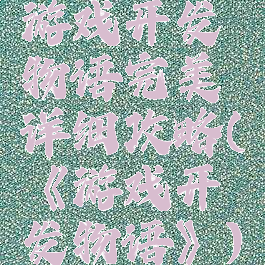 游戏开发
物语完美
详细攻略(
《游戏开
发物语》)